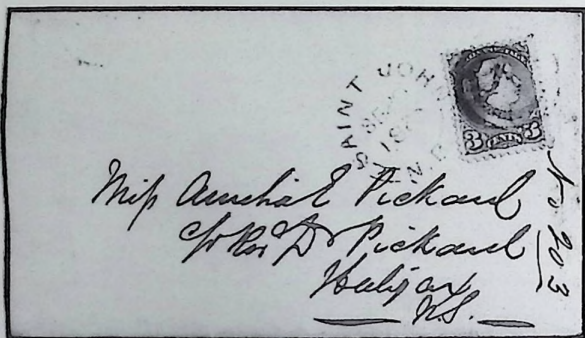 SAINT JOHN
SE
18
N.B
3 CENTS 3
Miss Amelia E Pickard
c/o Rev Dr Pickard
Halifax
N.S.
No 203